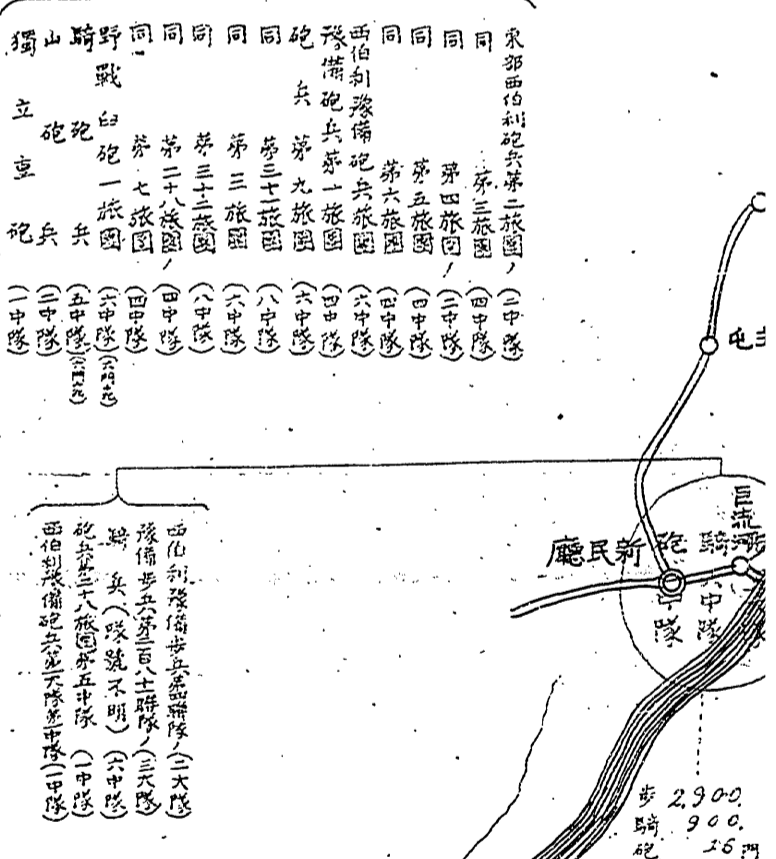 東部西伯利砲兵第二旅團ノ(二中隊)
同 第三旅團(四中隊)
同 第四旅團ノ(二中隊)
同 第五旅團(四中隊)
同 第六旅團(四中隊)
西伯利豫備砲兵旅團(六中隊)
豫備砲兵第一旅團(四中隊)
砲兵第九旅團(六中隊)
同 第三十一旅團(八中隊)
同 第三旅團(六中隊)
同 第三十二旅團(八中隊)
同 第二十八旅團ノ(四中隊)
同 第七旅團(四中隊)
野戰臼砲一旅團(六中隊)(六門宛)
騎砲兵(五中隊)(六門宛)
山砲兵(二中隊)
獨立重砲(一中隊)
屯
巨流河
新民廳
騎 中隊
砲 中隊
西伯利豫備步兵第四聯隊ノ(二大隊)
豫備步兵第二百八十一聯隊ノ(三大隊)
騎兵(隊號不明)(六中隊)
砲兵第二十八旅團第五中隊(一中隊)
西伯利豫備砲兵第二大隊第一中隊(一中隊)
步 2,900.
騎 900.
砲 16門